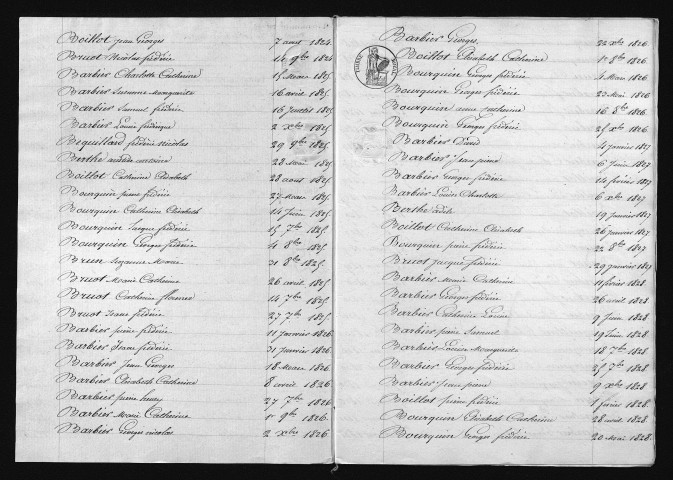 Boillot Jean Georges 7 aout 1824.
Bruot Nicolas fréderic 14 9bre 1824
Barbier Charlotte Catherine 15 Mars 1825
Barbier Suzanne Marguerite 16 avril 1825
Barbier Samuel fréderic 16 Juillet 1825
Barbier Louise 2 Xbre 1825
Bequillard fréderic Nicolas 29 9bre 1825
Berthe 28 Mai 1825
Boillot Catherine Elisabeth 28 aout 1825
Bourquin pierre fréderic 27 Mars 1825
Bourquin Catherine Elisabeth 14 Juin 1825
Bourquin Jacques fréderic 15 7bre 1825
Bourquin Georges fréderic 4 8bre 1825
Brun Suzanne Marie 31 8bre 1825.
Bruot Marie Catherine 26 avril 1825.
Bruot Catherine 14 7bre 1825
Bruot Jean fréderic 27 7bre 1825
Barbier pierre fréderic 11 Janvier 1826
Barbier Jean fréderic 31 Janvier 1826
Barbier Jean Georges 18 Mars 1826
Barbier Elisabeth Catherine 8 avril 1826
Barbier pierre henry 27 7bre 1826
Barbier Marie Catherine 9bre 1826.
Barbier Georges Nicolas 2 Xbre 1826
Barbier Georges. 22 Xbre 1826
Boillot Elisabeth Catherine 8bre 1826.
Bourquin Georges fréderic 4 Mars 1826
Bourquin Georges fréderic 23 Mai 1826
Bourquin anne Catherine 16 8bre 1826.
Bourquin Georges fréderic 25 Xbre 1826
Barbier David 4 Janvier 1827
Barbier Jean pierre 6 Juin 1827
Barbier Georges fréderic 14 février 1827
Barbier Louise Charlotte 6 Xbre 1827
Berthe 19 Janvier 1827
Boillot Catherine Elisabeth 26 Janvier 1827
Bourquin pierre fréderic 22 8bre 1827
Bruot Jacques fréderic 29 Janvier 1827
Barbier Marie Catherine 11 février 1828
Barbier Georges fréderic 26 avril 1828
Barbier Catherine Louise 9 Juin 1828
Barbier pierre Samuel 19 Juin 1828
Barbier Louise Marguerite 18 7bre 1828
Barbier Georges fréderic 25 7bre 1828
Barbier Jean pierre 9 Xbre 1828
Boillot pierre fréderic 1 février 1828.
Bourquin Elisabeth Catherine 28 aout 1828.
Bourquin Georges fréderic 20 Mai 1828.